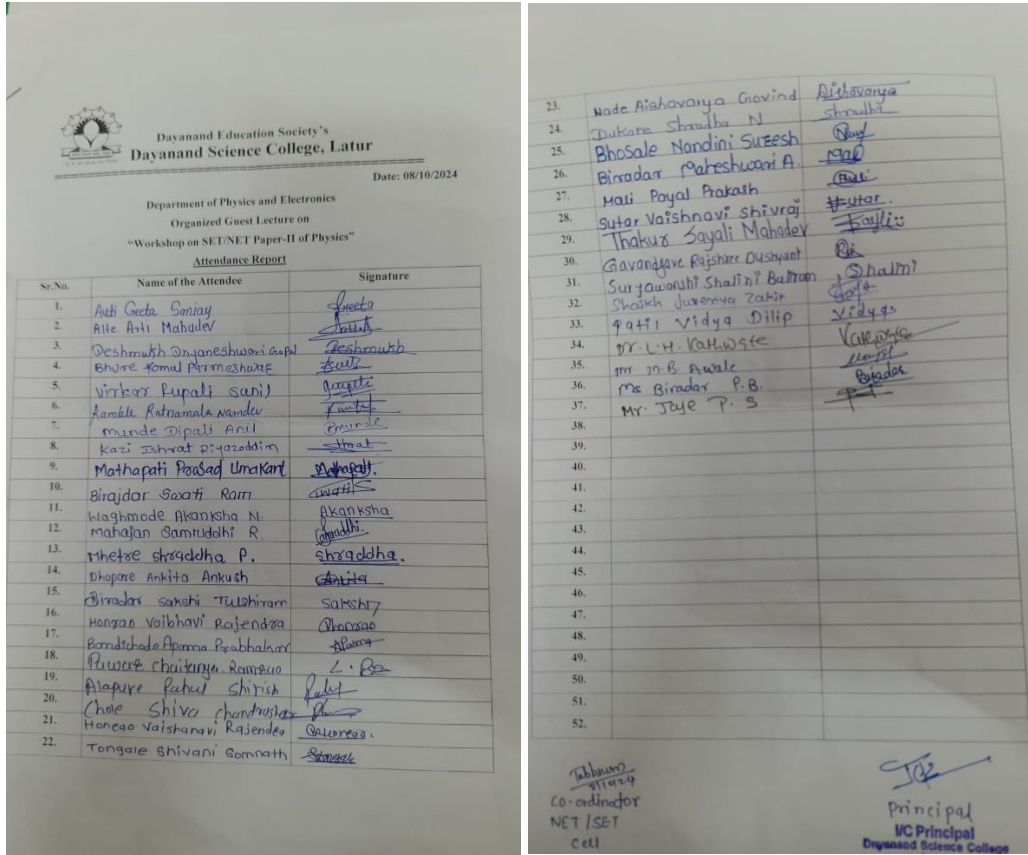 Dayanand Education Society's
Dayanand Science College, Latur
Date: 08/10/2024
Department of Physics and Electronics
Organized Guest Lecture on
"Workshop on SET/NET Paper-II of Physics"
Attendance Report
Sr.No. Name of the Attendee Signature
1. Geeta Sanjay Geeta
2. Arti Mahadev
3. Deshmukh Dnyaneshwari Gopal Deshmukh
4. Bhure Komal Parmeshwar
5. Virkar Rupali Sunil
6. Kamble Ratnamala Namdev
7. Munde Dipali Anil Dmunde
8. Kazi Ishrat Riyazoddin
9. Mathapati Prasad Umakant Mathapati.
10. Birajdar Swati Ram Swati
11. Waghmode Akanksha N. Akanksha
12. Mahajan Samruddhi R.
13. Mhetre Shraddha P. Shraddha.
14. Dhopare Ankita Ankush Ankita
15. Biradar Sakshi Tulshiram Sakshi
16. Honrao Vaibhavi Rajendra
17. Aparna Prabhakar
18. Pawar Chaitanya
19. Alapure Rahul Shirish
20. Chole Shiva Chandrashekhar
21. Honrao Vaishanavi Rajendra
22. Tongale Shivani Somnath
23. Nade Aishavarya Govind Aishavarya
24. Dukare Shradha N Shradha
25. Bhosale Nandini Suresh
26. Biradar Maheshwari A.
27. Mali Payal Prakash
28. Sutar Vaishnavi Shivraj Sutar.
29. Thakur Sayali Mahadev
30. Rajshree Dushyant
31. Suryawanshi Shalini Baliram Shalini
32. Shaikh Juveriya Zakir
33. Patil Vidya Dilip Vidya
34. Dr. L.H. Kathwate Kathwate
35. Mr M.B. Awale
36. Ms Biradar P.B. Biradar
37. Mr. P. S
38.
39.
40.
41.
42.
43.
44.
45.
46.
47.
48.
49.
50.
51.
52.
Co-ordinator
NET/SET
Cell
Principal
I/C Principal
Dayanand Science College